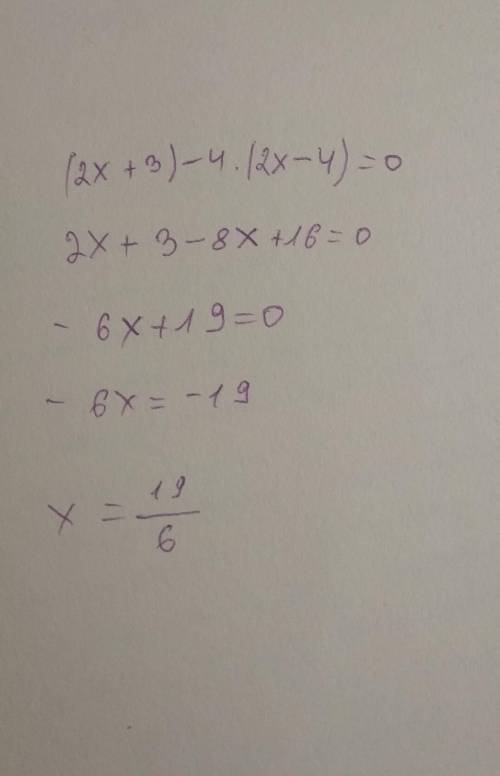 (2x + 3) - 4 · (2x - 4) = 0
2x + 3 - 8x + 16 = 0
- 6x + 19 = 0
- 6x = -19
x = 19/6